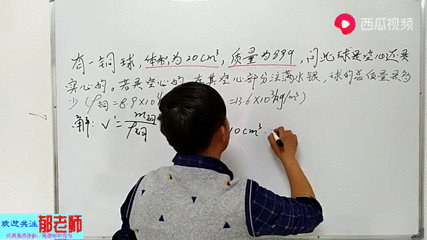 西瓜视频
有一铜球,体积为20cm³,质量为89g,问此球是空心还是
实心的。若是空心的,在其空心部分注满水银,球的总质量是多
少(ρ铜=8.9×10³ =13.6×10³kg/m³)
解: V=m铜/ρ铜 10cm³
欢迎关注
郁老师